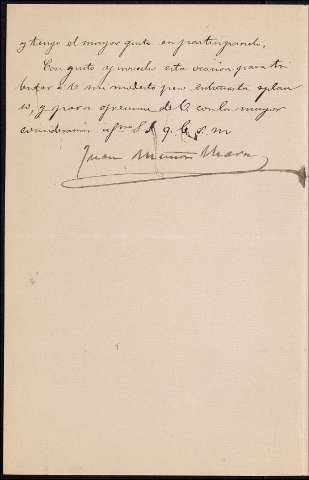 y tengo el mayor gusto en participarselo.
Con gusto aprovecho esta ocasion para tri
butar a V. mi modesto pero entusiasta aplau
so, y para ofrecerme de V. con la mayor
consideracion af^mo S. S. q. b. s. m
Juan